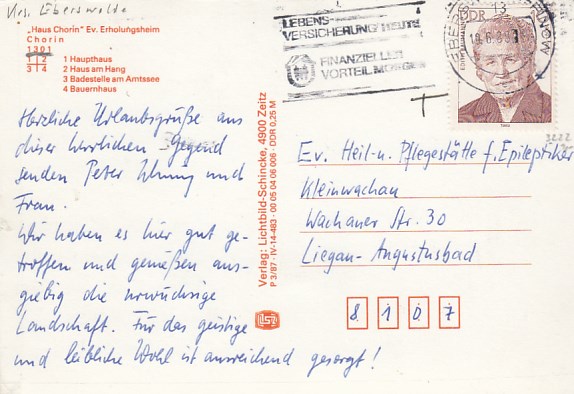 Krs. Eberswalde
„Haus Chorin“ Ev. Erholungsheim
Chorin
1301
1 | 2 1 Haupthaus
3 | 4 2 Haus am Hang
3 Badestelle am Amtssee
4 Bauernhaus
Herzliche Urlaubsgrüße aus
dieser herrlichen Gegend
senden Peter und
Frau.
Wir haben es hier gut ge-
troffen und genießen aus-
giebig die urwüchsige
Landschaft. Für das geistige
und leibliche Wohl ist ausreichend gesorgt!
Verlag: Lichtbild-Schincke, 4900 Zeitz
P 3/87 · IV-14-483 · 00 05 04 06 006 · DDR 0,25 M
LEBENS-
VERSICHERUNG HEUTE
FINANZIELLER
VORTEIL MORGEN
13
DDR
3222
Ev. Heil-u. Pflegestätte f. Epileptiker
Kleinwachau
Wachauer Str. 30
Liegau-Augustusbad
8 1 0 7